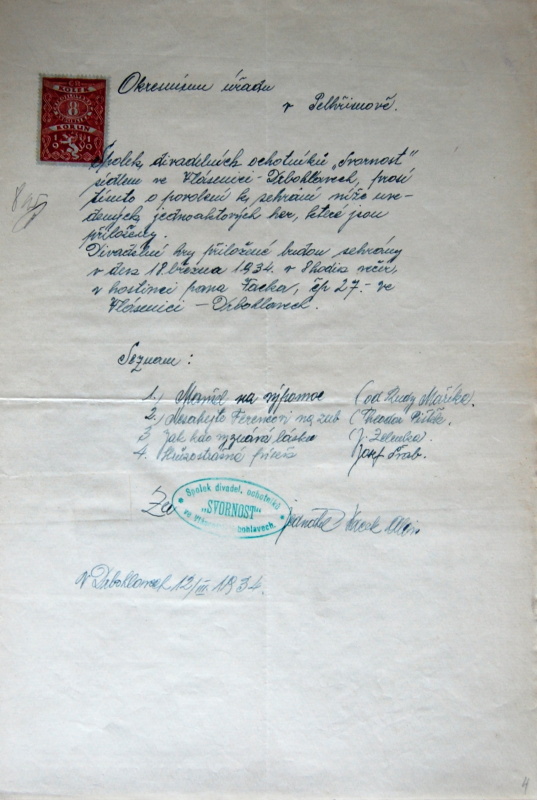 KOLEK
8
KORUN
Okresnímu úřadu
v Pelhřimově.
Spolek divadelních ochotníků „Svornost"
sídlem ve Vlásenici-Drbohlavech, prosí
tímto o povolení k sehrání níže uve-
dených jednoaktových her, které jsou
přiloženy.
Divadelné hry přiložené budou sehrány
v den 18. března 1934. v 8 hodin večír,
v hostinci pana Vacka, čp 27.- ve
Vlásenici - Drbohlavech.
Seznam:
1.) na výpomoc (od Rudy Maříka.
2.) Nesahejte Ferencovi na zub (Theodor Pištěk.
3. Jak kdo vyznává lásku J. Zelenka.
4. Hrůzostrašné Josef Šváb.
Za
Spolek divadel. ochotníků
„SVORNOST"
jednatel
V Drbohlavech 12/III. 1934.
4